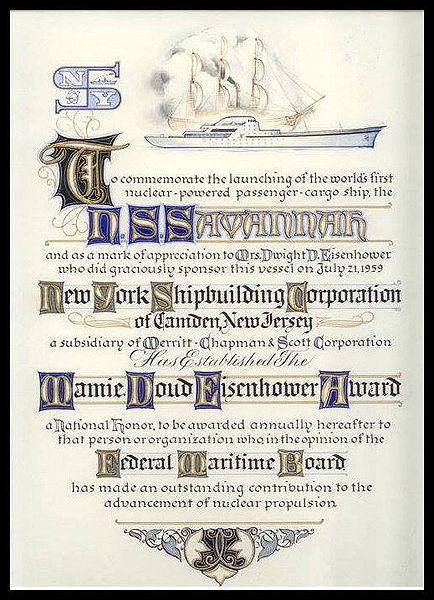 NY S
To commemorate the launching of the world's first
nuclear-powered passenger-cargo ship, the
N.S. Savannah
and as a mark of appreciation to Mrs. Dwight D. Eisenhower
who did graciously sponsor this vessel on July 21, 1959
New York Shipbuilding Corporation
of Camden, New Jersey
a subsidiary of Merritt-Chapman & Scott Corporation
Has Established The
Mamie Doud Eisenhower Award
a National Honor, to be awarded annually hereafter to
that person or organization who, in the opinion of the
Federal Maritime Board
has made an outstanding contribution to the
advancement of nuclear propulsion